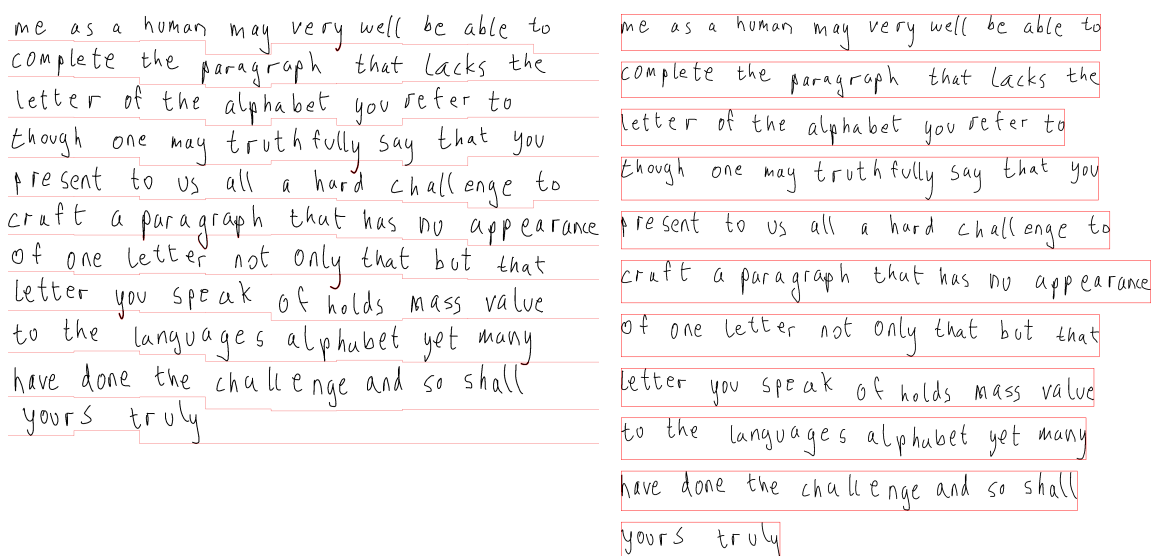 me as a human may very well be able to
complete the paragraph that lacks the
letter of the alphabet you refer to
though one may truthfully say that you
present to us all a hard challenge to
craft a paragraph that has no appearance
of one letter not only that but that
letter you speak of holds mass value
to the languages alphabet yet many
have done the challenge and so shall
yours truly
me as a human may very well be able to
complete the paragraph that lacks the
letter of the alphabet you refer to
though one may truthfully say that you
present to us all a hard challenge to
craft a paragraph that has no appearance
of one letter not only that but that
letter you speak of holds mass value
to the languages alphabet yet many
have done the challenge and so shall
yours truly